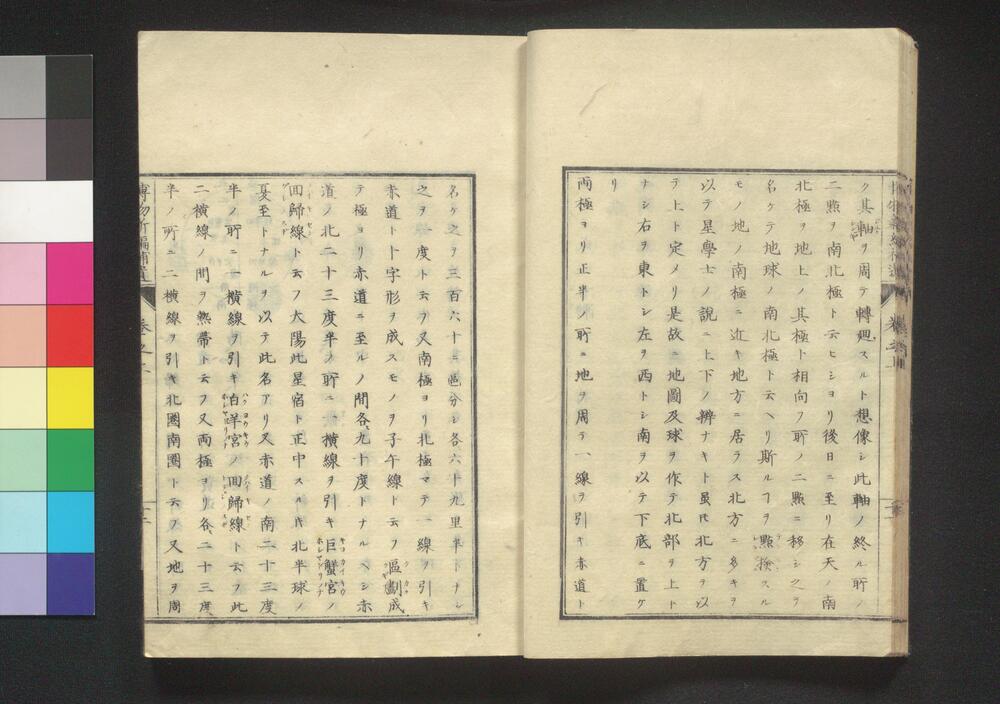 ク其軸ヲ周テ轉廻スルト想像シ此軸ノ終ル所ノ
二㸃ヲ南北極ト云ヒシヨリ後日ニ至リ在天ノ南
北極ヲ地上ノ其極ト相向フ所ノ二㸃ニ移シ之ヲ
名ケテ地球ノ南北極ト云ヘリ斯ルフヲ㸃撿スル
モノ地ノ南極ニ近キ地方ニ居ラス北方ニ多キヲ
以テ星學士ノ說ニ上下ノ辨ナキト虽𪜈北方ヲ以
テ上ト定メリ是故ニ地圖及球ヲ作テ北部ヲ上ト
ナシ右ヲ東トシ左ヲ西トシ南ヲ以テ下底ニ置ケ
リ
両極ヨリ正半ノ所ニ地ヲ周テ一線ヲ引キ赤道ト
名ケ之ヲ三百六十ニ區分シ各六十九里半トナシ
之ヲ一度ト云ヲ又南極ヨリ北極マテ一線ヲ引キ
赤道ト十字形ヲ成スモノヲ子午線ト云フ區劃成
テ極ヨリ赤道ニ至ルノ間各九十度トナルヘシ赤
道ノ北二十三度半ノ所ニ一横線ヲ引キ巨蟹宮ノ
回歸線ト云フ大陽此星宿ト正中スル𪜈北半球ノ
夏至トナルヲ以テ此名アリ又赤道ノ南二十三度
半ノ所ニ一横線ヲ引キ白羊宮ノ回歸線ト云フ此
二横線ノ間ヲ熱帶ト云フ又両極ヨリ各二十三度
半ノ所ニ二横線ヲ引キ北圈南圈ト云フ又地ヲ周
博物新編補遺
卷之上